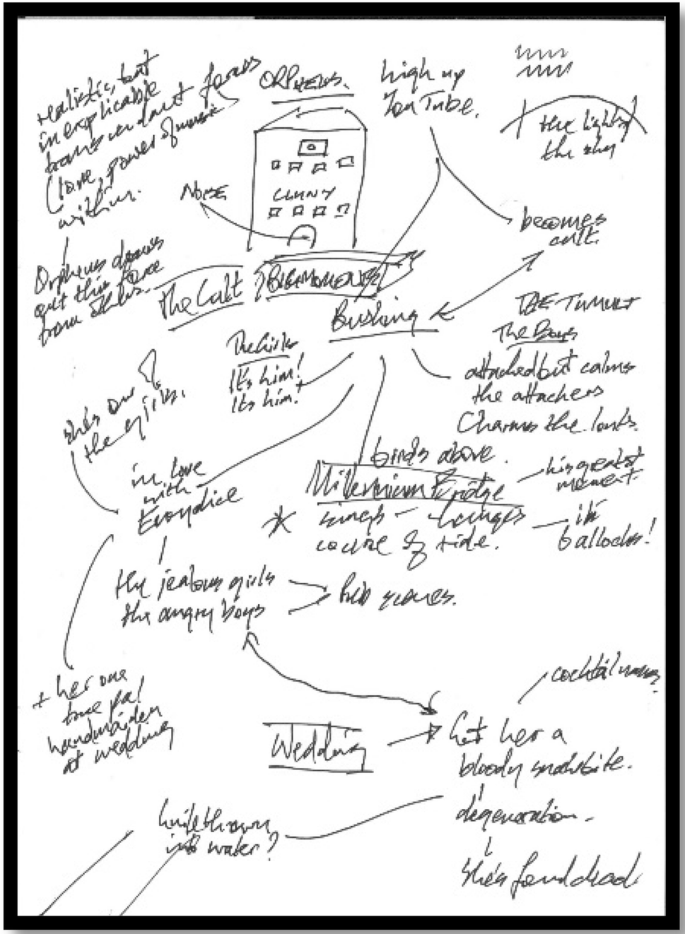 realistic, but
inexplicable
transcendant forces
(love, power of music
within.
Orpheus draws
out this force
from others.
ORPHEUS.
CLUNY
NOISE
high up
YouTube.
the light of
the sky
becomes
cult.
The Cult
Busking
The Girls
It's him!
It's him!
THE TUMULT
The Boys
attached but calms
the attackers
Charms the louts.
she's one of
the girls.
in love
with
Eurydice
birds above.
Millennium Bridge
sings – changes
course of tide.
his greatest
moment
it's
bollocks!
the jealous girls
the angry boys
pub scenes.
+ her one
true pal
handmaiden
at wedding
Wedding
cocktail names
Get her a
bloody snakebite.
degeneration.
she's found dead.
knife thrown
into water?